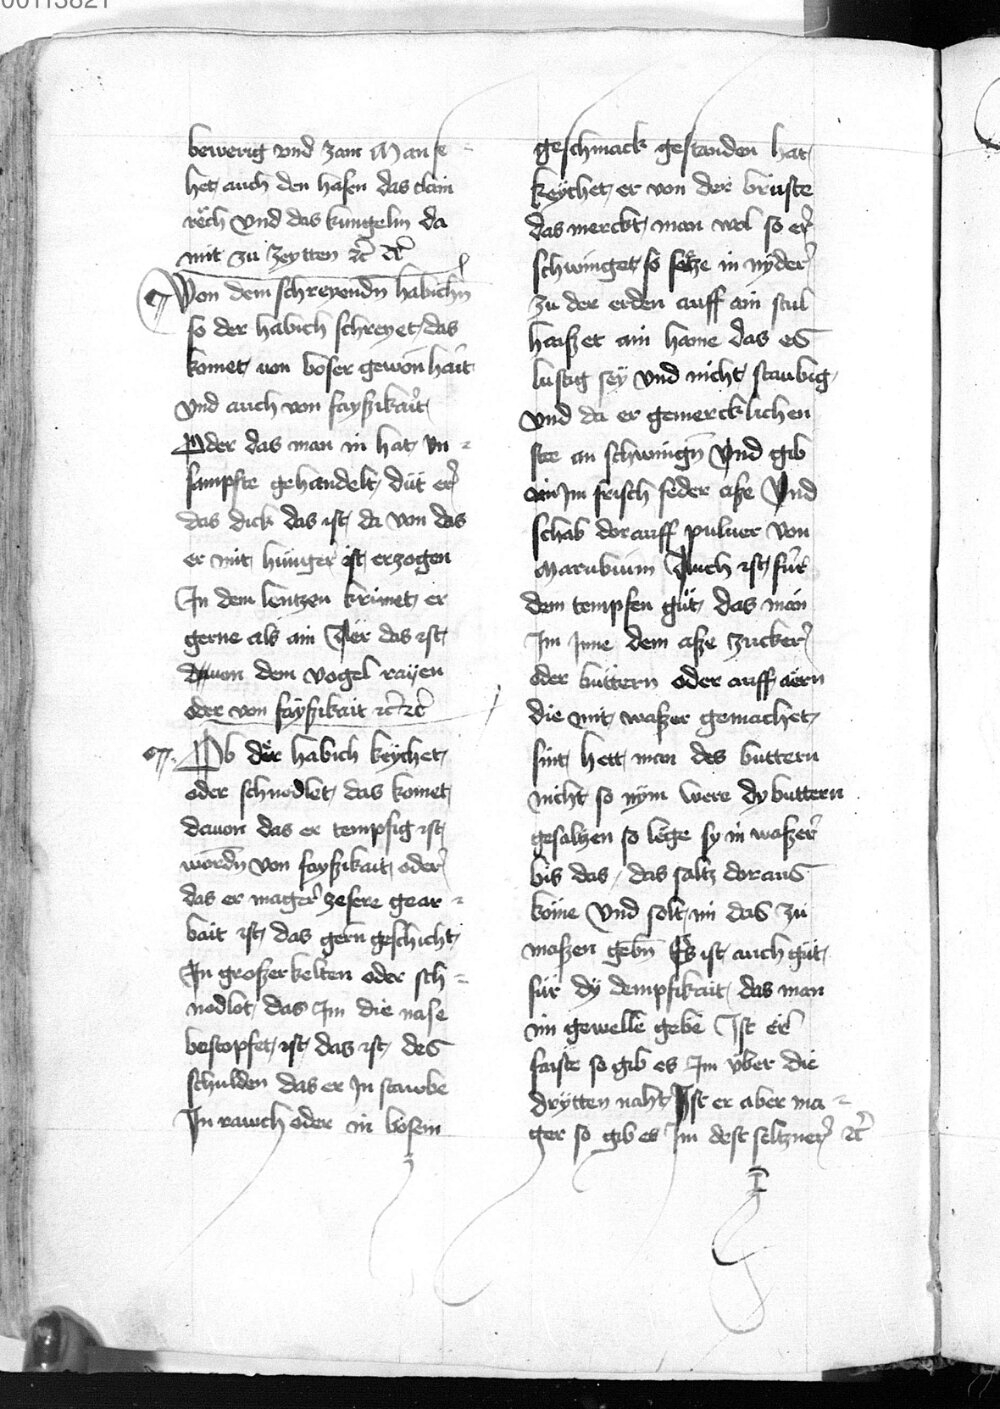 00113821
bewerig vnd zam Man se
het auch den hasen das clain
rech vnd das kungelin da
mit zu zeytten ꝛc̃ ꝛc̃
Von dem schreyendn habichn
so der habich schreyet das
komet von boser gewonhait
vnd auch von fayszikait
Oder das man in hat vn
sampfte gehandelt düt er
das dick das ist da von das
er mit hunger ist erzogen
In dem lentzen krimet er
gerne als ain das ist
davon dem vogel rayen
oder von fayszikait ꝛc̃ ꝛc̃
Ob der habich keychet
oder schnodlet das komet
davon das er tempfig ist
wordn von fayszikait oder
das er mager zesere gear
bait ist das gern geschicht
In groszer kelten oder sch
nodlot das Im die nase
bestopfet ist daz ist des
schulden das er In staube
In rauch oder in bosem
geschmack gestanden hat
keychet er von der bruste
das merckt man wol so er
schwinget so secze in nyder
zu der erden auff ain stul
haiszet ain hame das es
lustig sey vnd nicht staubig
vnd da er gemercklichen
ste an schwingn vnd gib
Im frisch feder asze Vnd
schab dorauff puluer von
Marubium Auch ist für
dem tempfen gut das man
Im Inne dem asze zucker
oder buttern oder auff aern
die mit waszer gemachet
sint hett man des buttern
nicht so nym were dy buttern
gesaltzen so lege sy in waszer
bis das das saltz doraus
köme Vnd solt im das zu
maszen gebn Es ist auch gut
für dy dempfikait das man
im gewelle gebe Ist er
faiste so gib es Im vber die
drytten naht Ist er aber ma
ger so gib es Im dest seltzner ꝛc̃